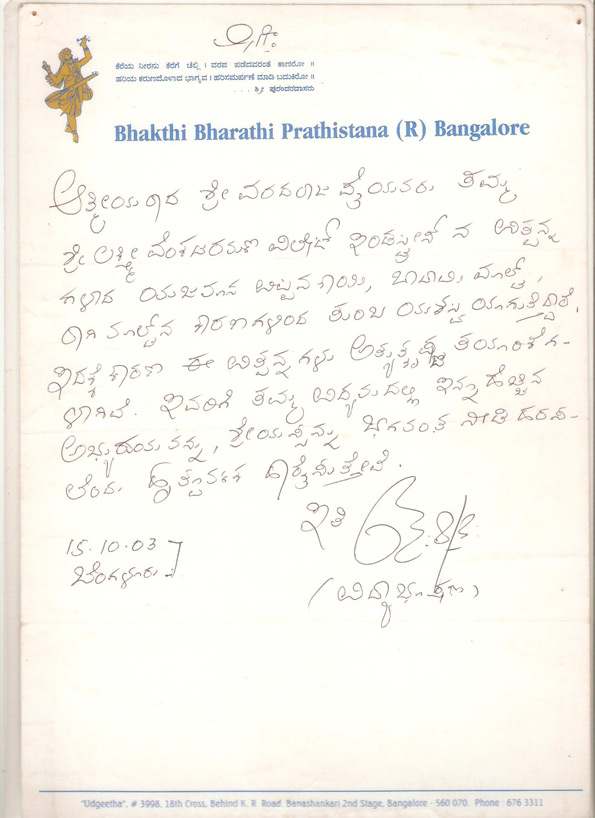 ಕೆರೆಯ ನೀರನು ಕೆರೆಗೆ ಚೆಲ್ಲಿ । ವರವ ಪಡೆದವರಂತೆ ಕಾಣಿರೋ ॥
ಹರಿಯ ಕರುಣದೊಳಾದ ಭಾಗ್ಯವ । ಹರಿಸಮರ್ಪಣೆ ಮಾಡಿ ಬದುಕಿರೋ ॥
. . . ಶ್ರೀ ಪುರಂದರದಾಸರು
Bhakthi Bharathi Prathistana (R) Bangalore
ಆತ್ಮೀಯರಾದ ಶ್ರೀ ವರದರಾಜ ಪೈಯವರು ತಮ್ಮ
ಶ್ರೀ ಲಕ್ಷ್ಮೀ ವೆಂಕಟರಮಣ ವಿಲೇಜ್ ಇಂಡಸ್ಟ್ರೀಸ್ ನ ಉತ್ಪನ್ನ
ಗಳಾದ ಯಜಮಾನ ಬಾದಾಮಿ ಮಾಲ್ಟ್,
ರಾಗಿ ಮಾಲ್ಟ್‌ನ ಕಾರಣಗಳಿಂದ ತುಂಬ
ಇದಕ್ಕೆ ಕಾರಣ ಈ ಉತ್ಪನ್ನಗಳು ಅತ್ಯುತ್ಕೃಷ್ಟ ತಯಾರಿಕೆಗ-
ಳಾಗಿವೆ. ಇವರಿಗೆ ತಮ್ಮ ಉದ್ಯಮದಲ್ಲಿ ಇನ್ನೂ ಹೆಚ್ಚಿನ
ಅಭ್ಯುದಯವನ್ನು, ಶ್ರೇಯಸ್ಸನ್ನು ಭಗವಂತ ನೀಡಿ ಹರಸ-
ಲೆಂದು ಹೃತ್ಪೂರ್ವಕ ಹಾರೈಸುತ್ತೇವೆ.
ಇತಿ
15.10.03
ಬೆಂಗಳೂರು
(ವಿದ್ಯಾಭೂಷಣ)
"Udgeetha", # 3998, 18th Cross, Behind K. R. Road, Banashankari 2nd Stage, Bangalore - 560 070. Phone : 676 3311